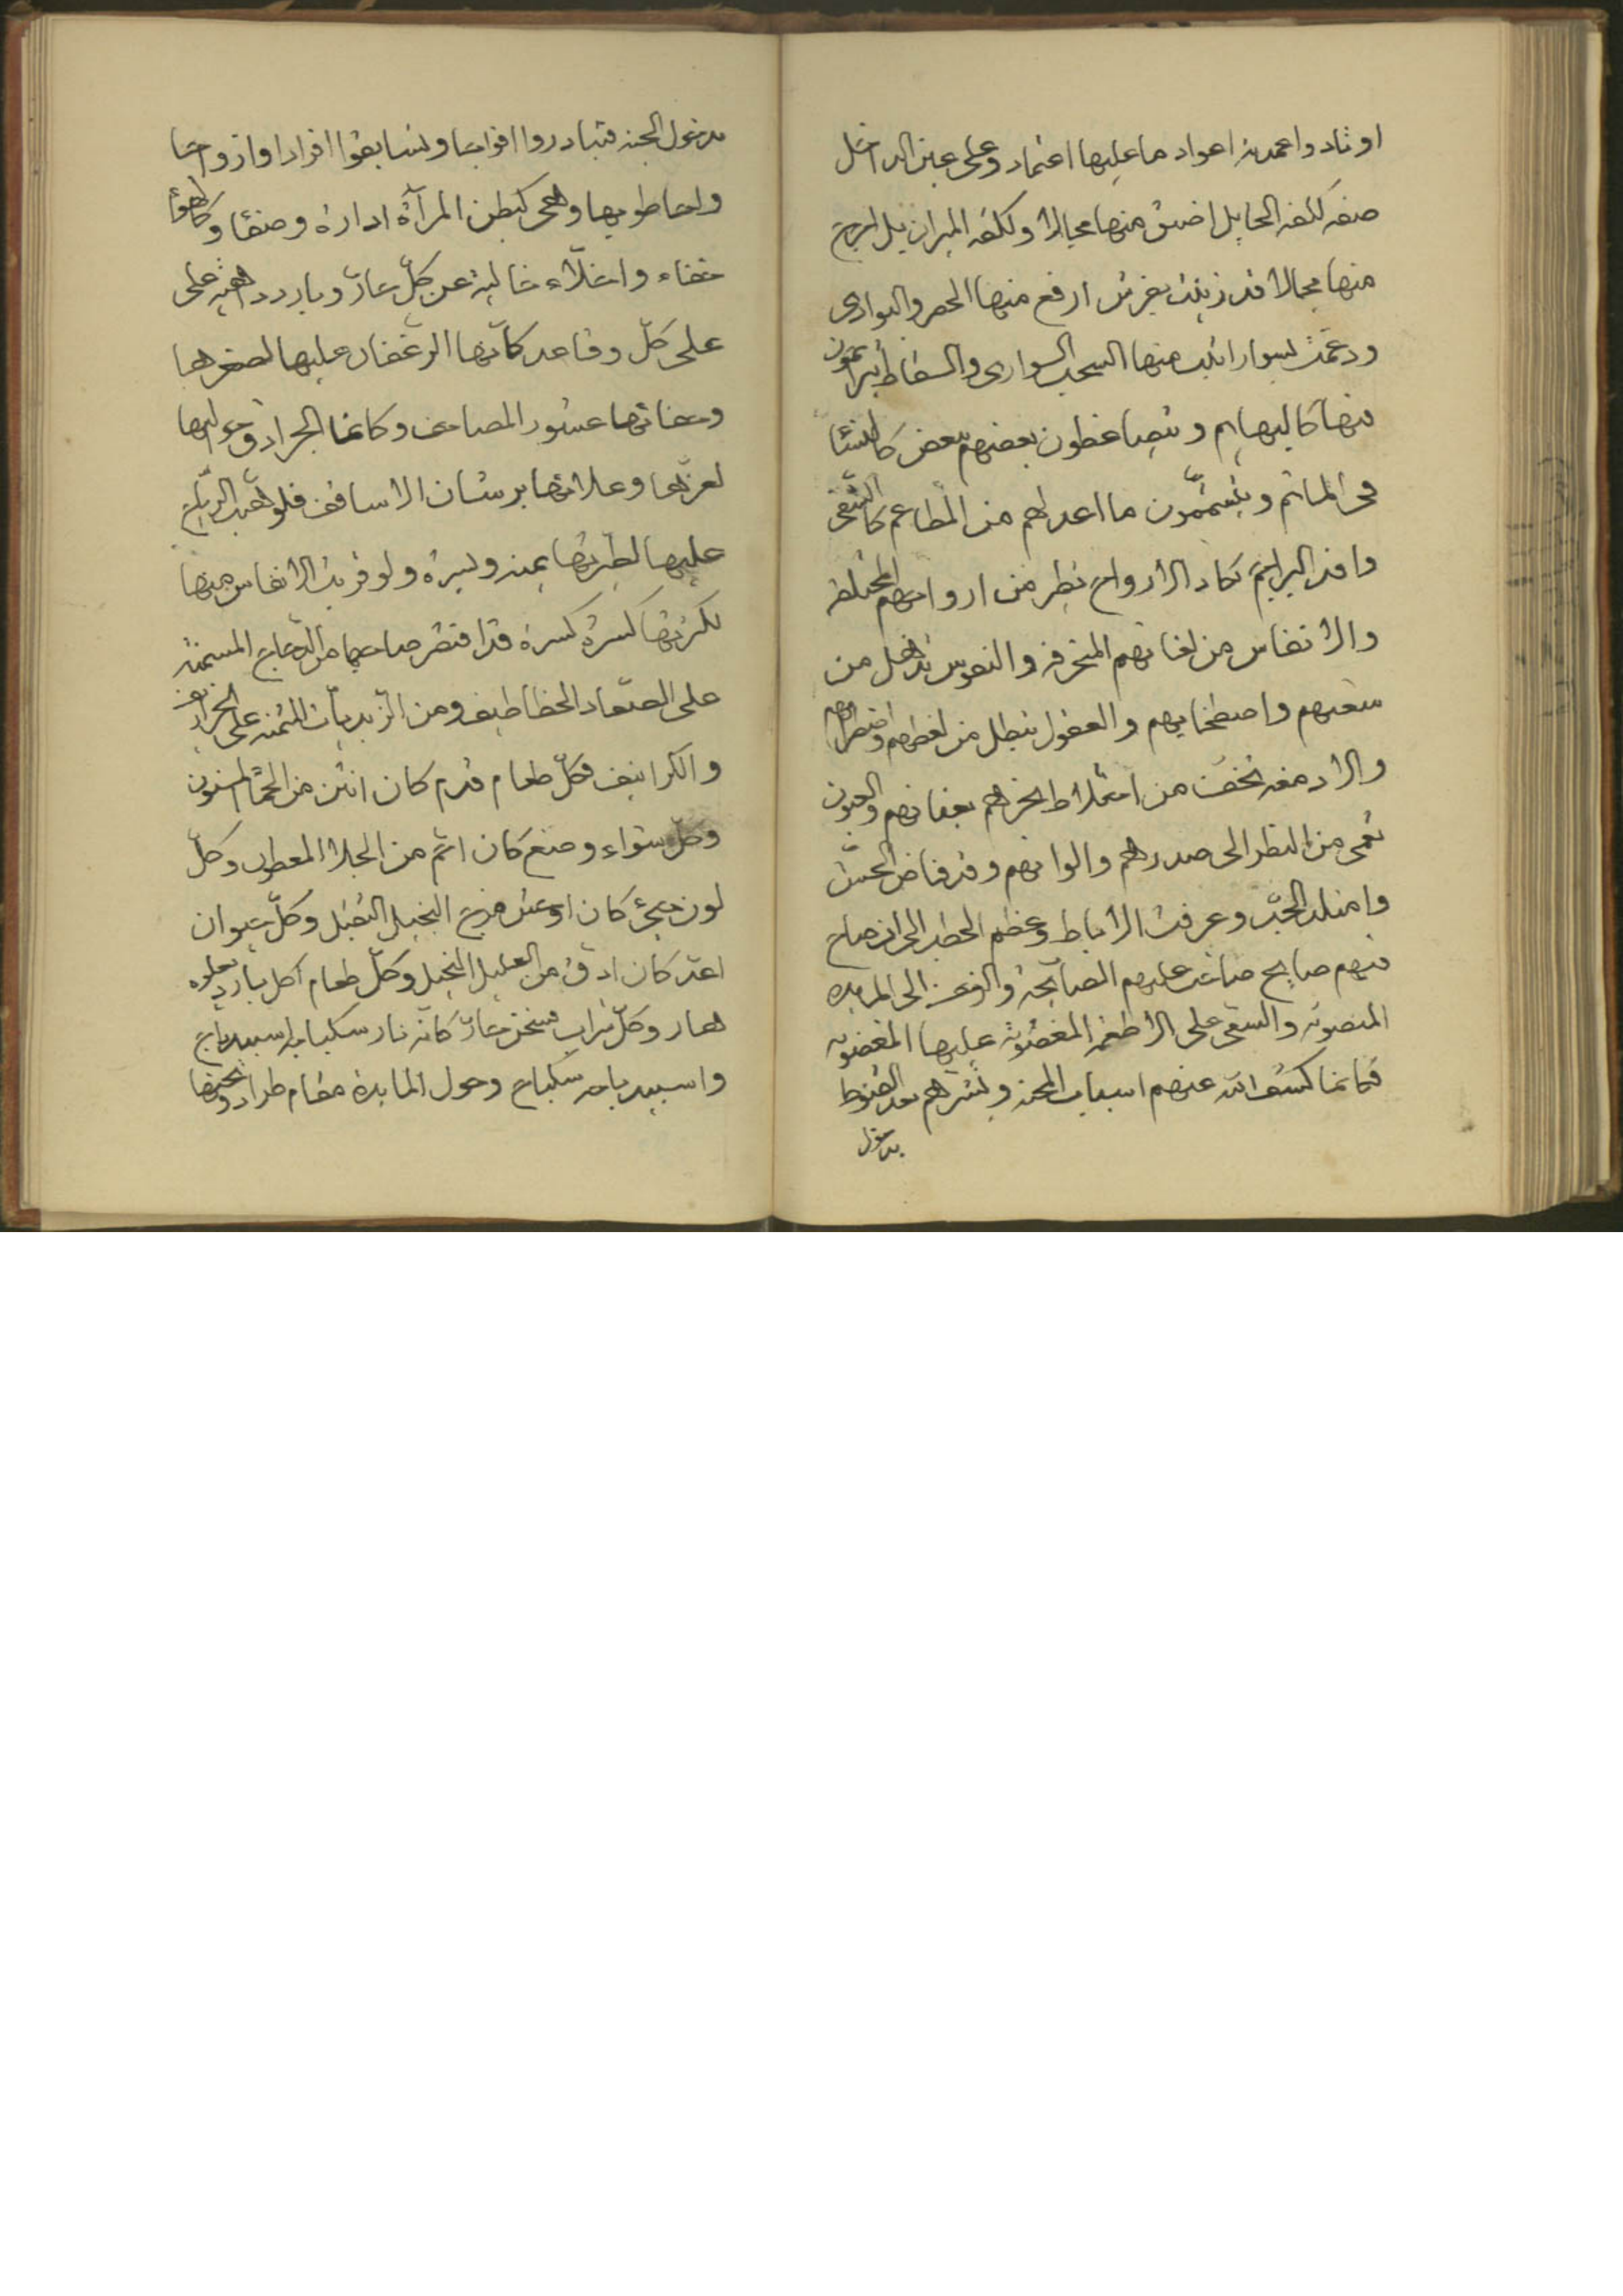 اوتاد واعمدة اعواد ما عليها اعتماد وعلى عين الداخل
صفه ككفه الحابل اضيق منها مجالا وككفه الميزان بل ارجح
منها مجالا قد زينت بفرش ارفع منها الحصر والبوارى
ودعمت بسوار اثبت منها السحب السوارى والسقاط
فيها كالبهايم ويتضاغطون بعضهم ببعض كالنسا
فى الماتم ويتشممون ما اعد لهم من المطاعم
وافد البراجم تكاد الارواح تطير من ارواحهم المختلفة
والانفاس من لغاتهم المنحرفه والنفوس تذهل من
شغبهم واصطخابهم والعقول تبطل من لغطهم واضطرابهم
والادمغه تخف من اختلاط ابخرهم والعيون
تعمى من النظر الى صدرهم والوانهم وقد فاض الحش
وامتلا الجب وعرقت الاباط وعظم الخطب الى ان صاح
فيهم صايح صاخت عليهم الصايحة والوعز الى المايده
المنصوبه والسعى على الاطعمه المغضوبة عليها المغصوبه
فكانما كشف الله عنهم اسباب المحنه وبشرهم بعد القنوط
بدخول
بدخول الجنه فتبادروا افواجا وتسابقوا افرادا وازواجا
واحاطوا بها وهى كبطن المرآة ادارة وضيقا
خفاء واخلاء خالية عن كل حار وبارد على
على كل وقاعد كانها الرغفان عليها لصغرها
وخفائها عشور المصاحف وكانما الجرادق حواليها
لعزتها وعلائها برشان الاساقف فلو هبت الريح
عليها لطيرتها يمنه ويسرة ولو قربت الانفاس منها
لكسرتها كسرة كسرة قد اقتصر صاحبها من الدجاج المسمنه
على الخطاطيف ومن الزيدبات المثمنه على
والكرانيف فكل طعام قدم كان انتن من الحما المسنون
وكل شواء وضع كان من المعطون وكل
لون جىء كان اوحش من البخيل الثقيل وكل حيوان
كان ادق من العليل النحيل وكل طعام اكل بارد
وكل شراب مسخن حار كانه نار سكباجه اسبيدباج
واسبيدباجه سكباج وحول المايدة مقام طراد